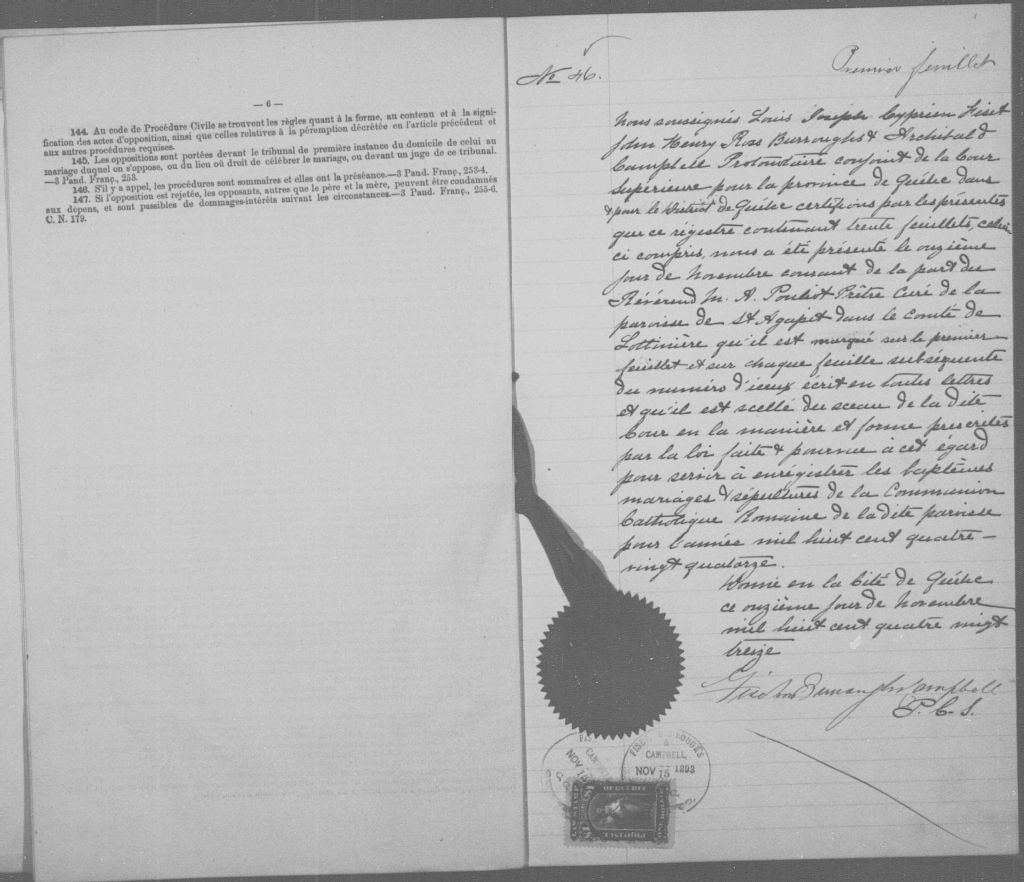 — 6 —
144. Au code de Procédure Civile se trouvent les règles quant à la forme, au contenu et à la signi-
fication des actes d'opposition, ainsi que celles relatives à la péremption décrétée en l'article précédent et
aux autres procédures requises.
145. Les oppositions sont portées devant le tribunal de première instance du domicile de celui au
mariage duquel on s'oppose, ou du lieu où droit de célébrer le mariage, ou devant un juge de ce tribunal.
—3 Pand. Franç., 253.
146. S'il y a appel, les procédures sont sommaires et elles ont la préséance.—3 Pand. Franç., 253-4.
147. Si l'opposition est rejetée, les opposants, autres que le père et la mère, peuvent être condamnés
aux dépens, et sont passibles de dommages-intérêts suivant les circonstances.—3 Pand. Franç., 255-6.
C. N. 179.
No 46.
Premier feuillet
Nous soussignés Louis Joseph Cyprien Fiset
John Henry Ross Burroughs & Archibald
Campbell Protonotaire conjoint de la Cour
Superieure pour la province de Québec dans
& pour le District de Québec certifions par les présentes
que ce régistre contenant trente feuillets, celui
ci compris, nous a été présenté le onzième
jour de Novembre courant de la part du
Révérend M. A. Pouliot Prêtre Curé de la
paroisse de St Agapit dans le comté de
Lotbinière qu'il est marqué sur le premier
feuillet et sur chaque feuille subséquente
du numéro d'iceux écrit en toutes lettres
et qu'il est scellé du sceau de la dite
Cour en la manière et forme prescrites
par la loi faite & pourvue à cet égard
pour servir à enrégistrer les baptêmes
mariages & sépultures de la Communion
Catholique Romaine de la dite paroisse
pour l'année mil huit cent quatre-
vingt quatorze.
Donné en la Cité de Québec
ce onzième jour de Novembre
mil huit cent quatre vingt
treize
Campbell
P. C. S.
CAMPBELL,
NOV 15 1893
NOV 15
OF QUEBEC
LAW STAMP